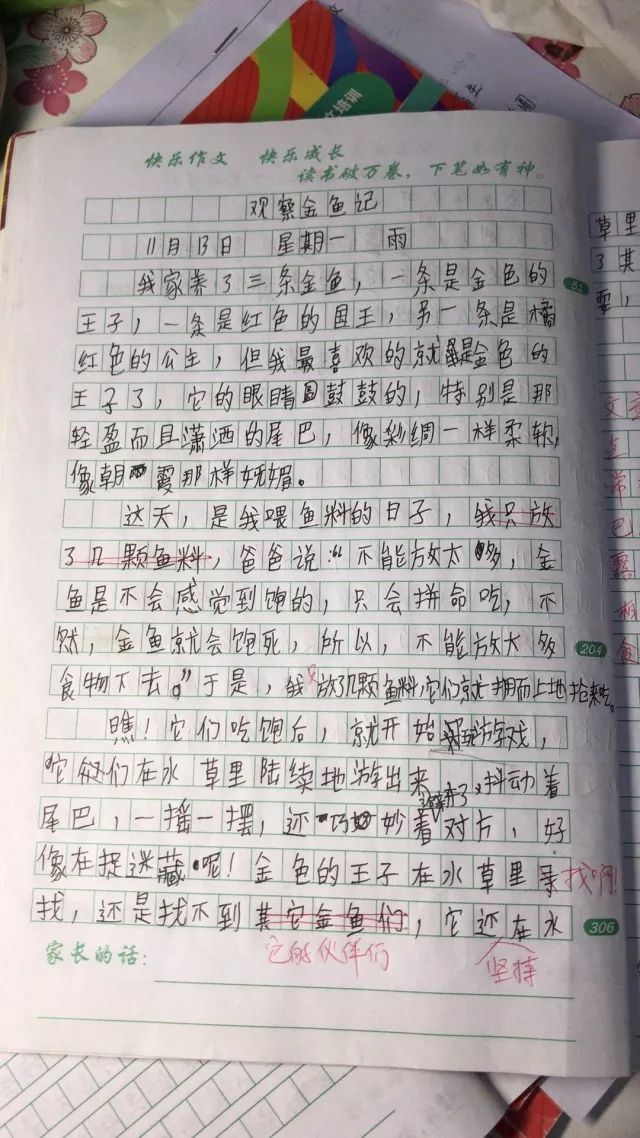 培训
快乐作文 快乐成长
读书破万卷，下笔如有神。
观察金鱼记
11月13日 星期一 雨
我家养了三条金鱼，一条是金色的
王子，一条是红色的国王，另一条是橘
红色的公主，但我最喜欢的就是金色的
王子了，它的眼睛圆鼓鼓的，特别是那
轻盈而且潇洒的尾巴，像彩绸一样柔软，
像朝霞那样妩媚。
这天，是我喂鱼料的日子，我只放
了几颗鱼料，爸爸说：“不能放太多，金
鱼是不会感觉到饱的，只会拼命吃，不
然，金鱼就会饱死，所以，不能放太多
食物下去。”于是，我只放几颗鱼料，它们就一拥而上地抢来吃。
瞧！它们吃饱后，就开始玩游戏，
它们在水草里陆续地游出来了，抖动着
尾巴，一摇一摆，还巧妙着对方，好
像在捉迷藏呢！金色的王子在水草里寻找啊！
找，还是找不到其它金鱼们，它还在水
它的伙伴们
坚持
家长的话：
51
204
306
草里
了其
耍，
文章
点
常
巴
露
相
食